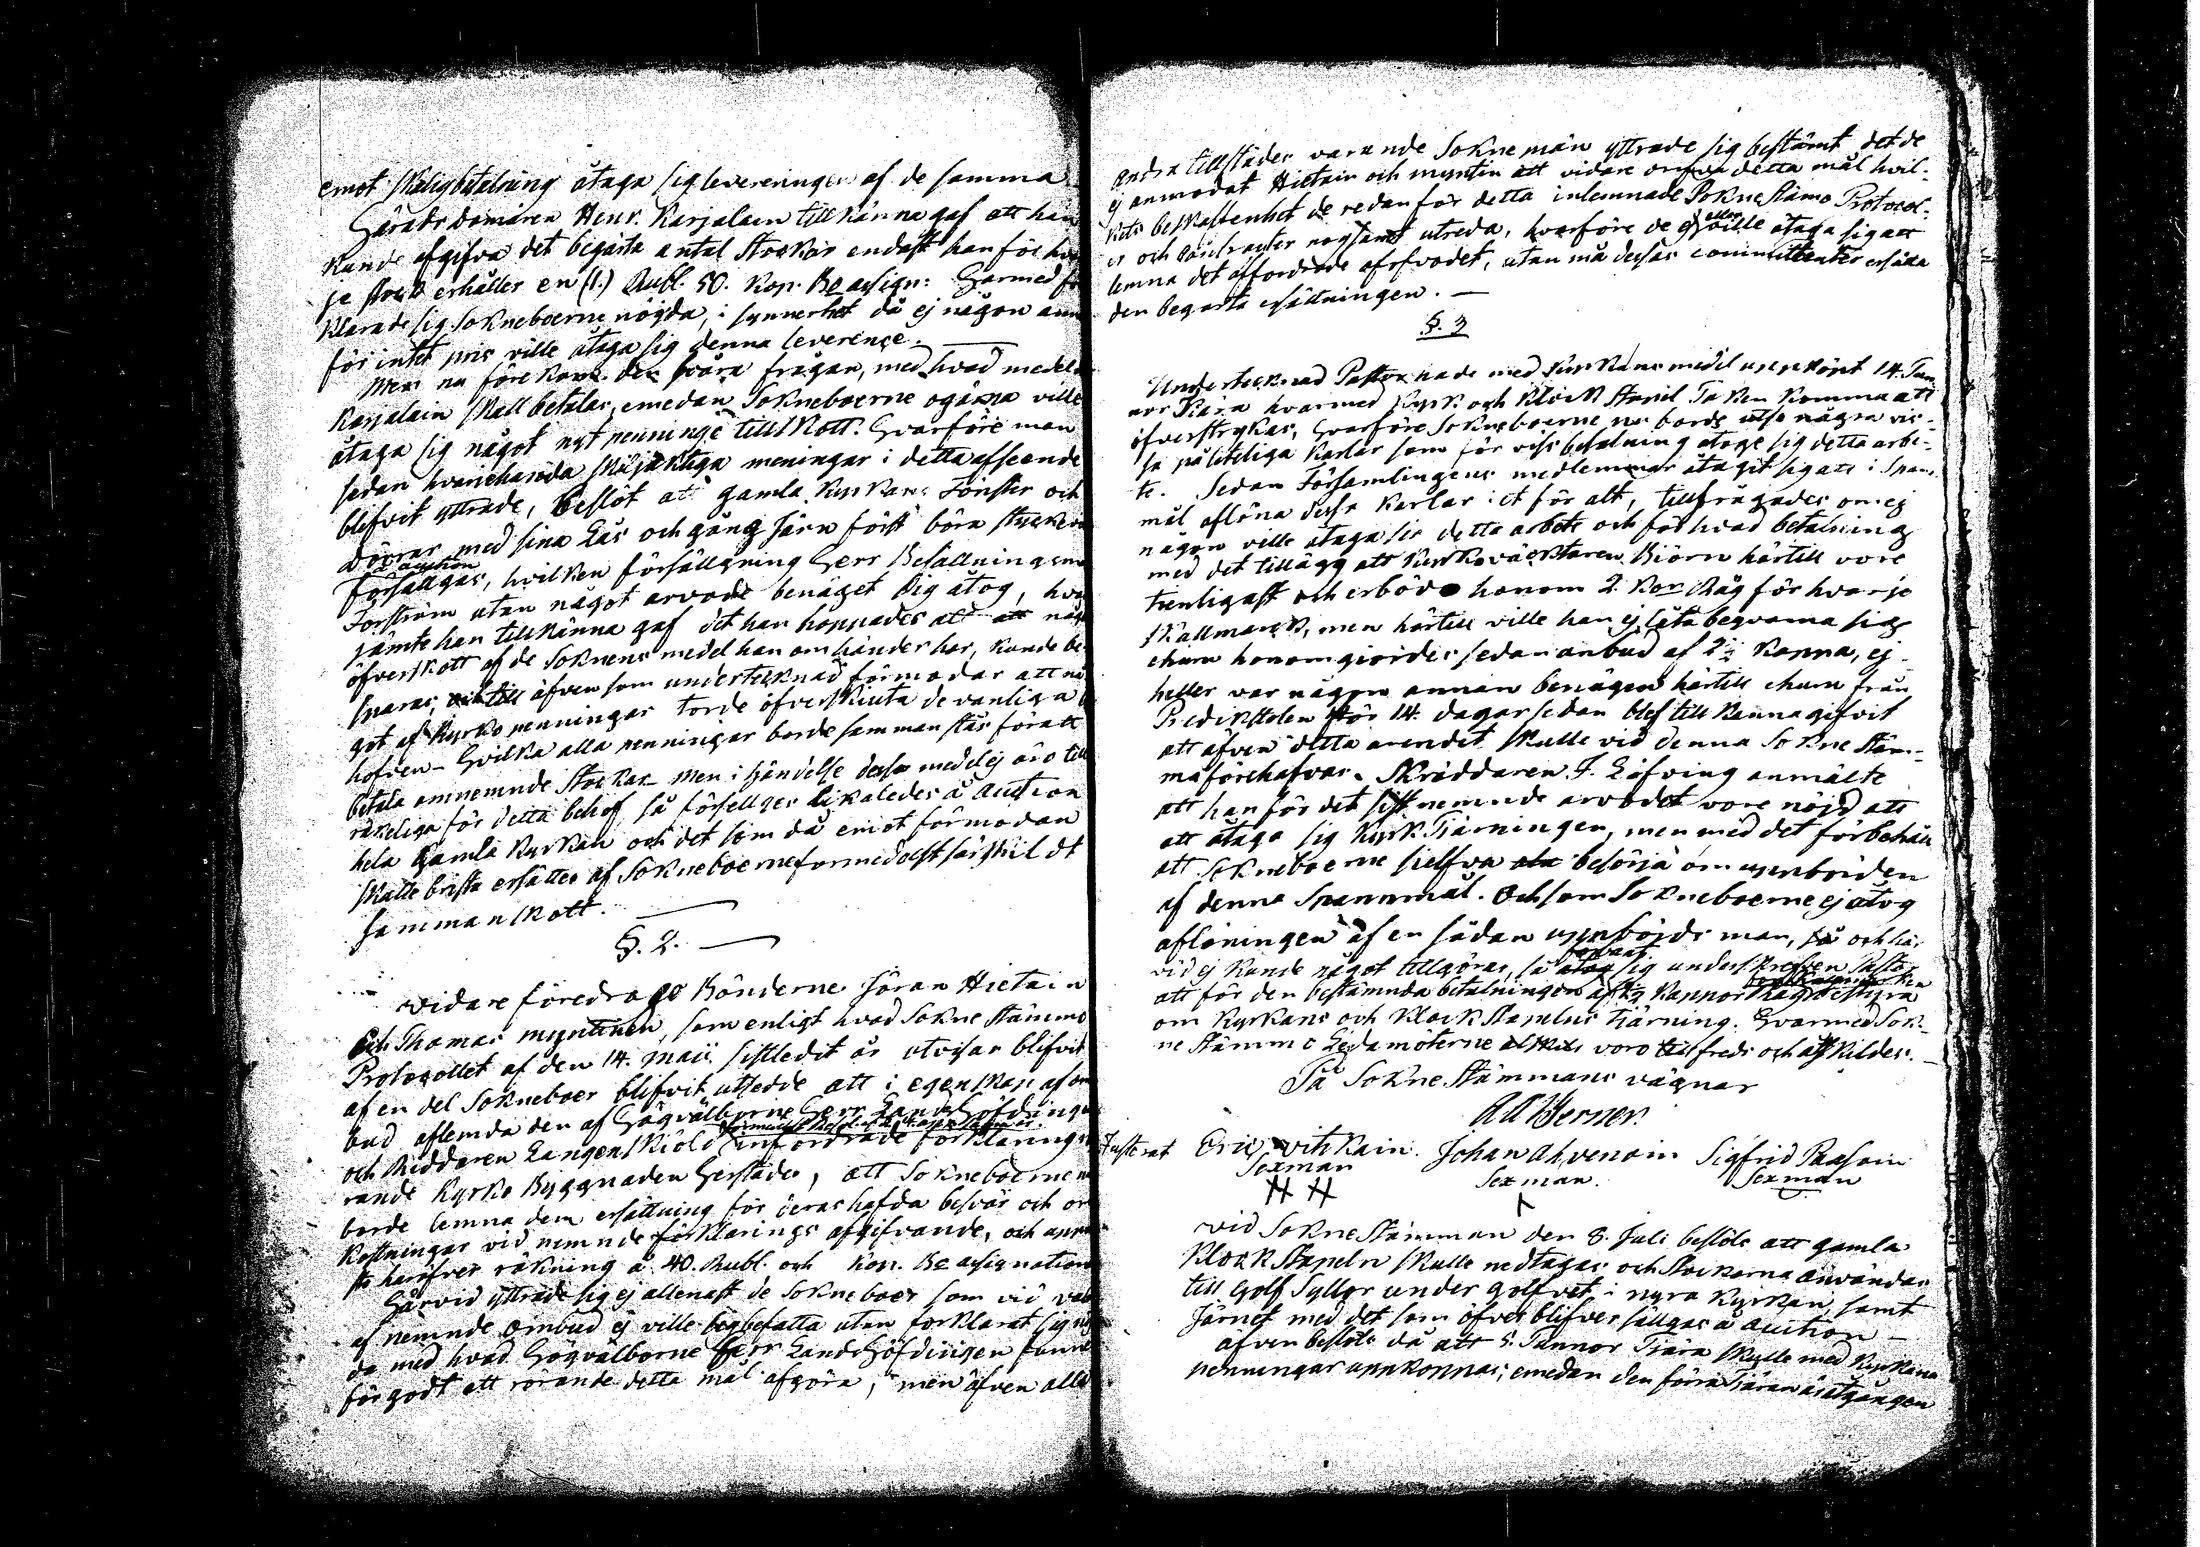 emot skälig betalning åtaga sig levereringen af de samma
Härads Domaren Henr. Karjalain tillkänna gaf att han
kunde afgifva det begärta antal Stockar endast han för hvar
je stock erhåller en (1.) Rubl. 50. Kop. Bo assign: Härmed för
klarade sig Sokneboerne nögda, i synnerhet då ej någon ann
för intet pris ville åtaga sig denna leverence.
Men nu förekom den svåra frågan, med hvad medel
Karjalain skall betalas, emedan Sokneboerne ogärna ville
åtaga sig något nyt penninge tillskott. Hvarföre man
sedan hvariehanda skiljaktiga meningar i detta afseende
blifvit yttrade, beslöt att gamla Kyrkans Fönster och
Dörrar med sina Lås och gång Järn först böra styckevis
å auction
försällgas, hvilken försällgning Herr Befallningsm
Forström utan något arvode benäget sig åtog, hvar
jämte han tillkänna gaf det han hoppades att nå
öfverskott af de Soknens medel han om händer har, kunde be
sparas, äfven som undertecknad förmodar att nå
got af Kyrko penningar torde öfverskiuta de vanliga be
hofven - Hvilka alla penningar borde sammanslås för att
betala omnemnde Stockar men i händelse dessa medel ej äro till
räkeliga för detta behof så försellges likaledes å Auction
hela Gamla Kyrkan och det som då emot förmodan
skulle brista ersättes af Sokneboerne formedelst särskildt
sammanskott.
§. 2.
Vidare föredrogo Bönderne Jöran Hietain
och Thomas Myntinen, som enligt hvad Sokne Stämmo
Protocollet af den 14. Maii sistledit år utvisar blifvit
af en del Sokneboer blifvit utsedde att i egenskap af om
bud aflemna den af Högvälborne Herr Landshöfdingen
och Riddaren Langenskiöld infordrade förklaringen
rörande Kyrko Byggnaden Herstädes, att Sokneboerne nu
borde lemna dem ersättning för deras hafda besvär och om
kostningar vid nemnde förklarings afgifvande, och uppvi
ste häröfver räkning à 40. Rubl. och Kop. Bo assignation
Härvid yttrade sig ej allenast de Sokneboer som vid val
af nemnde ombud ej ville sig befatta utan förklarat sig nög
da med hvad Högvälborne Herr Landshöfdingen funne
för godt att rörande detta mål afgöra, men äfven alla
andra tillstädes varande Soknemän yttrade sig bestämt det de
ej anmodat Hietain och Myntin att vidare detta mål hvil-
kets beskaffenhet de redan för detta inlemnade Sokne Stämo Protocol-
er och Contracter nogsamt utreda, hvarföre de ej eller ville åtaga sig att
lemna det affordrade arfvodet, utan må dessas committenter ersätta
den begarta ersättningen. —
§. 3
Undertecknad Pastor hade med Kyrkans medel uppköpt 14. Tun
nor Tiära hvarmed Kyrk. och Klock Stapel Taken komma att
öfverstrykas, Hvarföre Sokneboerne nu borde utse några vis-
sa påliteliga Karlar som för viss betalning atoge sig detta arbe-
te. Sedan Församlingens medlemmar åtagit sig att i Span-
mål aflöna dessa Karlar i et för alt, tillfrågades om ej
någon ville åtaga sig detta arbete och för hvad betalning
med det tillägg att Kyrkoväcktaren Biörn härtill vore
tienligast och erböds honom 2. Kap Råg för hvarje
, men härtill ville han ej låta beqvama sig
ehuru honom giordes sedan anbud af 2½ Kappa, ej
heller var någon annan benägen härtill ehuru från
Predikstolen för 14. dagar sedan blef till kanna gifvit
att äfven detta arendet skulle vid denna Sokne Stäm-
ma förehafvas. Skräddaren J. Löfving anmälte
att han för det sist nemnde arvodet vore nöjd att
att åtaga sig Kyrk. Tiärningen, men med det förbehåll
att Sokneboerne sielfva besörja om uppbörden
af denna Spannmål. Och som Sokneboerne ej åtog
aflöningen af en sådan uppbörds man, och här
vid ej kunde något tillgöras, så sig underskrefven Pastor
att för den bestämnda betalningen af 2½ Kappor Råg
om Kyrkans och Klock Stapelns Tiärning. Hvarmed Sok-
ne Stämmo Ledamöterne voro tillfreds och åtskildes.
På Sokne Stämmans vägnar
Ad Berner.
Justerat Eric Vitikain. Johan Ahvenain Sigfrid Paasoin
Sexman Sexman. Sexman
Vid Sokne Stämman den 8. Juli beslöts att gamla
Klock Stapeln skulle nedtagas och Stockarna användas
till Golf Syllor under golfvet i nyra Kyrkan, samt
Järnet med det som öfver blifver sällgas å auction —
äfven beslöts då att 5. Tunnor Tiära skulle med Kyrkans
penningar uppköpas, emedan den förra Tiäran är åtgången